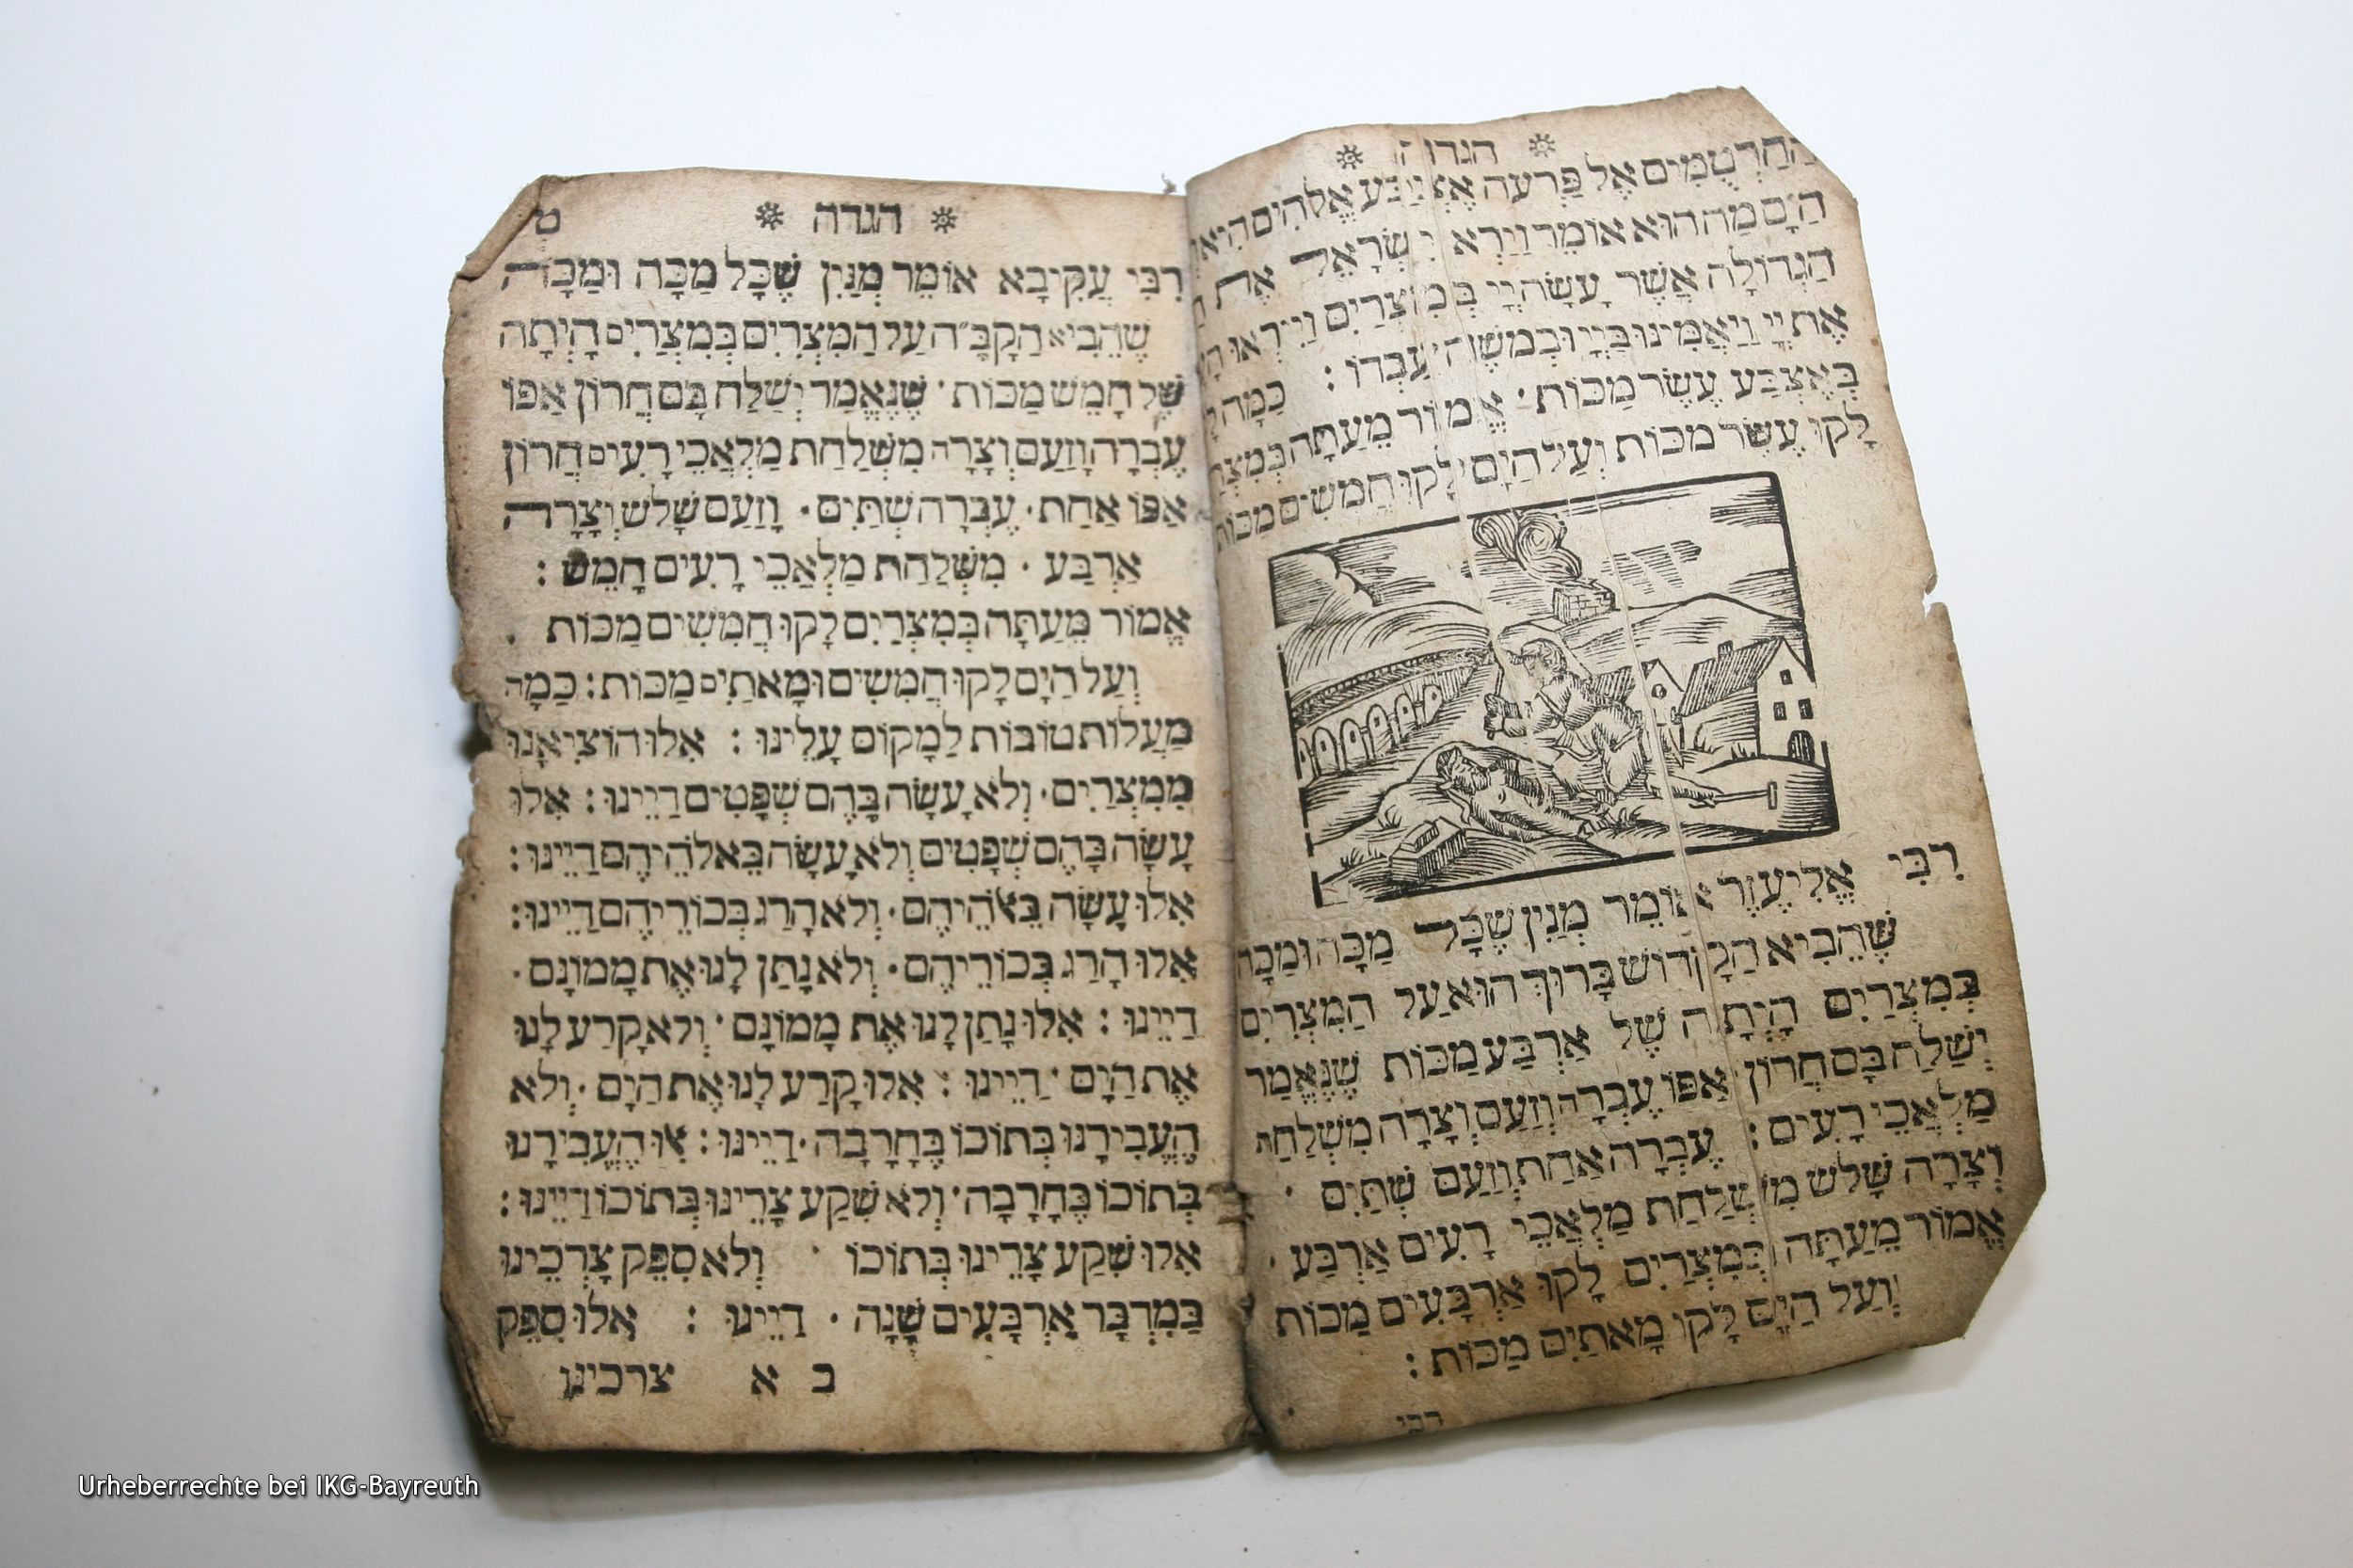 הגדה
הַחַרְטֻמִּים אֶל פַּרְעֹה אֶצְבַּע אֱלֹהִים הִיא
הַיָּם מַה הוּא אוֹמֵר וַיַּרְא יִשְׂרָאֵל אֶת
הַגְּדוֹלָה אֲשֶׁר עָשָׂה יְיָ בְּמִצְרַיִם וַיִּרְאוּ
אֶת יְיָ וַיַּאֲמִינוּ בַּיְיָ וּבְמֹשֶׁה עַבְדּוֹ : כַּמָּה
בְּאֶצְבַּע עֶשֶׂר מַכּוֹת · אֱמוֹר מֵעַתָּה בְּמִצְרַ
לָקוּ עֶשֶׂר מַכּוֹת וְעַל הַיָּם לָקוּ חֲמִשִּׁים מַכּוֹת
רִבִּי אֱלִיעֶזֶר אוֹמֵר מְנַיִן שֶׁכָּל מַכָּה וּמַכָּה
שֶׁהֵבִיא הַקָּדוֹשׁ בָּרוּךְ הוּא עַל הַמִּצְרִים
בְּמִצְרַיִם הָיְתָה שֶׁל אַרְבַּע מַכּוֹת שֶׁנֶּאֱמַר
יְשַׁלַּח בָּם חֲרוֹן אַפּוֹ עֶבְרָה וָזַעַם וְצָרָה מִשְׁלַחַת
מַלְאֲכֵי רָעִים : עֶבְרָה אַחַת וָזַעַם שְׁתַּיִם ·
וְצָרָה שָׁלֹשׁ מִשְׁלַחַת מַלְאֲכֵי רָעִים אַרְבַּע ·
אֱמוֹר מֵעַתָּה בְּמִצְרַיִם לָקוּ אַרְבָּעִים מַכּוֹת
וְעַל הַיָּם לָקוּ מָאתַיִם מַכּוֹת :
רבי
הגדה ט
רִבִּי עֲקִיבָא אוֹמֵר מְנַיִן שֶׁכָּל מַכָּה וּמַכָּה
שֶׁהֵבִיא הַקָבָּ״ה עַל הַמִּצְרִים בְּמִצְרַיִם הָיְתָה
שֶׁל חָמֵשׁ מַכּוֹת · שֶׁנֶּאֱמַר יְשַׁלַּח בָּם חֲרוֹן אַפּוֹ
עֶבְרָה וָזַעַם וְצָרָה מִשְׁלַחַת מַלְאֲכֵי רָעִים חֲרוֹן
אַפּוֹ אַחַת · עֶבְרָה שְׁתַּיִם · וָזַעַם שָׁלֹשׁ וְצָרָה
אַרְבַּע · מִשְׁלַחַת מַלְאֲכֵי רָעִים חָמֵשׁ :
אֱמוֹר מֵעַתָּה בְּמִצְרַיִם לָקוּ חֲמִשִּׁים מַכּוֹת .
וְעַל הַיָּם לָקוּ חֲמִשִּׁים וּמָאתַיִם מַכּוֹת : כַּמָּה
מַעֲלוֹת טוֹבוֹת לַמָּקוֹם עָלֵינוּ : אִלּוּ הוֹצִיאָנוּ
מִמִּצְרַיִם · וְלֹא עָשָׂה בָּהֶם שְׁפָטִים דַיֵינוּ : אִלּוּ
עָשָׂה בָּהֶם שְׁפָטִים וְלֹא עָשָׂה בֵּאלֹהֵיהֶם דַיֵינוּ :
אִלּוּ עָשָׂה בֵּאלֹהֵיהֶם · וְלֹא הָרַג בְּכוֹרֵיהֶם דַיֵינוּ :
אִלּוּ הָרַג בְּכוֹרֵיהֶם · וְלֹא נָתַן לָנוּ אֶת מָמוֹנָם ·
דַיֵינוּ : אִלּוּ נָתַן לָנוּ אֶת מָמוֹנָם · וְלֹא קָרַע לָנוּ
אֶת הַיָּם · דַיֵינוּ : אִלּוּ קָרַע לָנוּ אֶת הַיָּם · וְלֹא
הֶעֱבִירָנוּ בְּתוֹכוֹ בֶּחָרָבָה · דַיֵינוּ : אִלּוּ הֶעֱבִירָנוּ
בְּתוֹכוֹ בֶּחָרָבָה · וְלֹא שִׁקַע צָרֵינוּ בְּתוֹכוֹ דַיֵינוּ :
אִלּוּ שִׁקַע צָרֵינוּ בְּתוֹכוֹ · וְלֹא סִפֵּק צָרְכֵינוּ
בַּמִּדְבָּר אַרְבָּעִים שָׁנָה · דַיֵינוּ : אִלּוּ סִפֵּק
ב א צרכינו
Urheberrechte bei IKG-Bayreuth